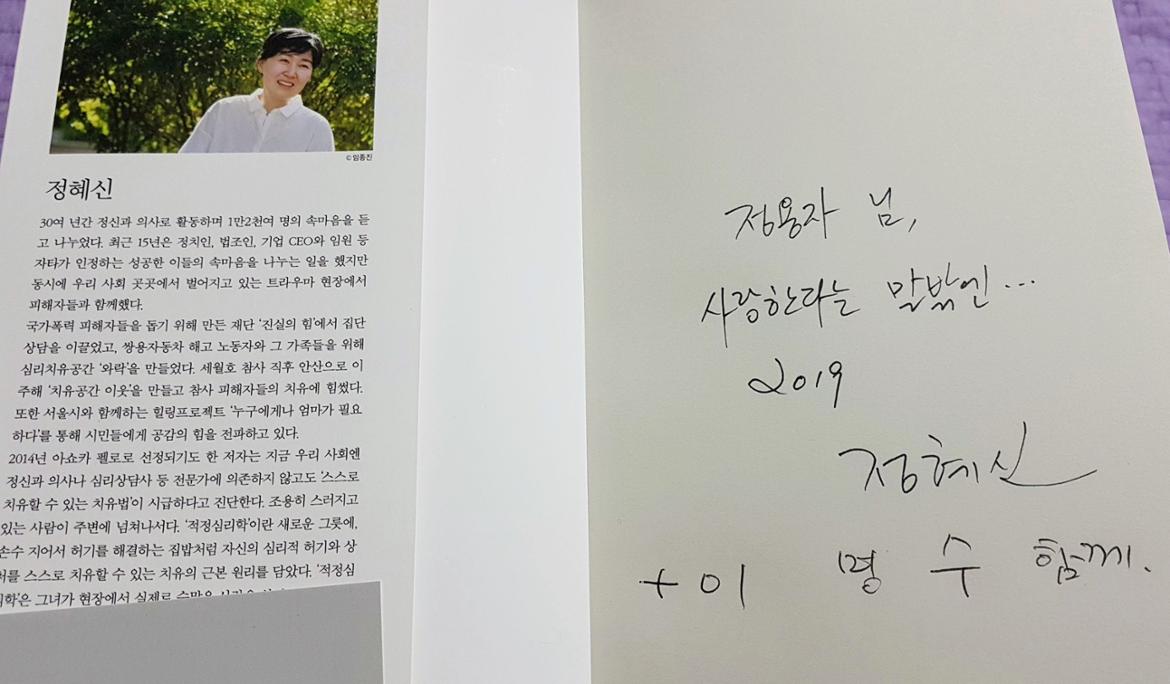 ©임종진
정혜신
30여 년간 정신과 의사로 활동하며 1만2천여 명의 속마음을 듣
고 나누었다. 최근 15년은 정치인, 법조인, 기업 CEO와 임원 등
자타가 인정하는 성공한 이들의 속마음을 나누는 일을 했지만
동시에 우리 사회 곳곳에서 벌어지고 있는 트라우마 현장에서
피해자들과 함께했다.
국가폭력 피해자들을 돕기 위해 만든 재단 '진실의 힘'에서 집단
상담을 이끌었고, 쌍용자동차 해고 노동자와 그 가족들을 위해
심리치유공간 '와락'을 만들었다. 세월호 참사 직후 안산으로 이
주해 '치유공간 이웃'을 만들고 참사 피해자들의 치유에 힘썼다.
또한 서울시와 함께하는 힐링프로젝트 '누구에게나 엄마가 필요
하다'를 통해 시민들에게 공감의 힘을 전파하고 있다.
2014년 아쇼카 펠로로 선정되기도 한 저자는 지금 우리 사회엔
정신과 의사나 심리상담사 등 전문가에 의존하지 않고도 '스스로
치유할 수 있는 치유법'이 시급하다고 진단한다. 조용히 스러지고
있는 사람이 주변에 넘쳐나서다. '적정심리학'이란 새로운 그릇에,
손수 지어서 허기를 해결하는 집밥처럼 자신의 심리적 허기와 상
처를 스스로 치유할 수 있는 치유의 근본 원리를 담았다. '적정심
리학'은 그녀가 현장에서 실제로 수많은
정용자 님,
사랑한다는 말밖엔...
2019
정혜신
+이 명 수 함께.